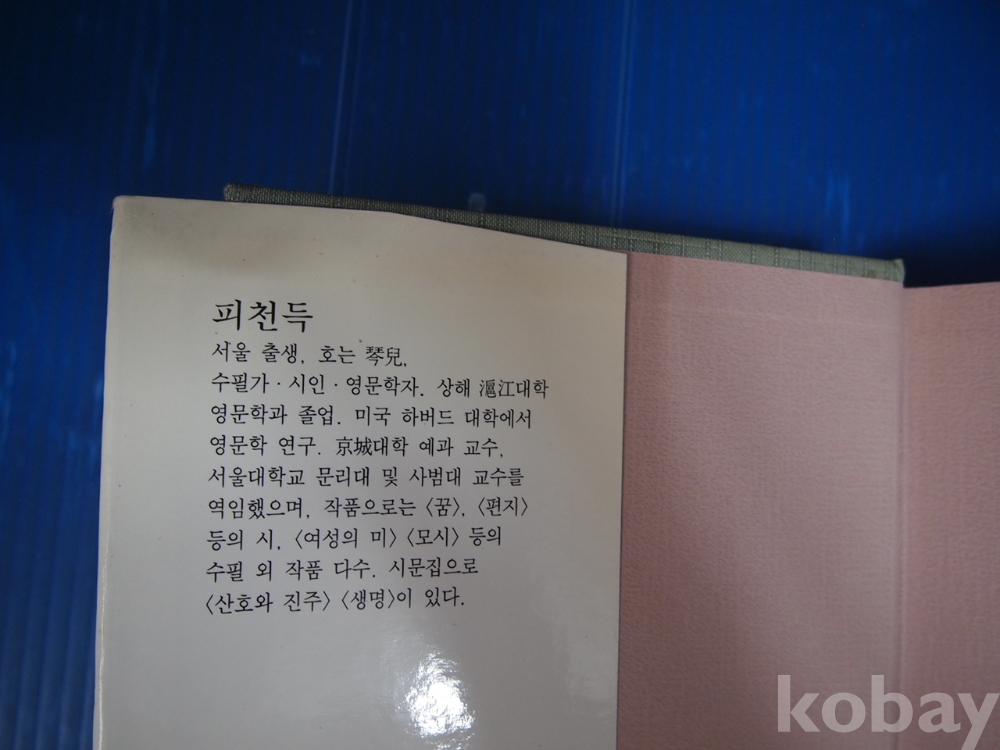 피천득
서울 출생. 호는 琴兒.
수필가 · 시인 · 영문학자. 상해 滬江대학
영문학과 졸업. 미국 하버드 대학에서
영문학 연구. 京城대학 예과 교수,
서울대학교 문리대 및 사범대 교수를
역임했으며, 작품으로는 〈꿈〉, 〈편지〉
등의 시, 〈여성의 미〉 〈모시〉 등의
수필 외 작품 다수. 시문집으로
〈산호와 진주〉 〈생명〉이 있다.
kobay